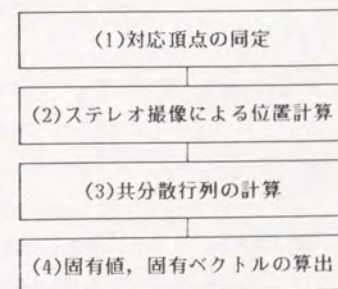 (1)対応頂点の同定
(2)ステレオ撮像による位置計算
(3)共分散行列の計算
(4)固有値，固有ベクトルの算出